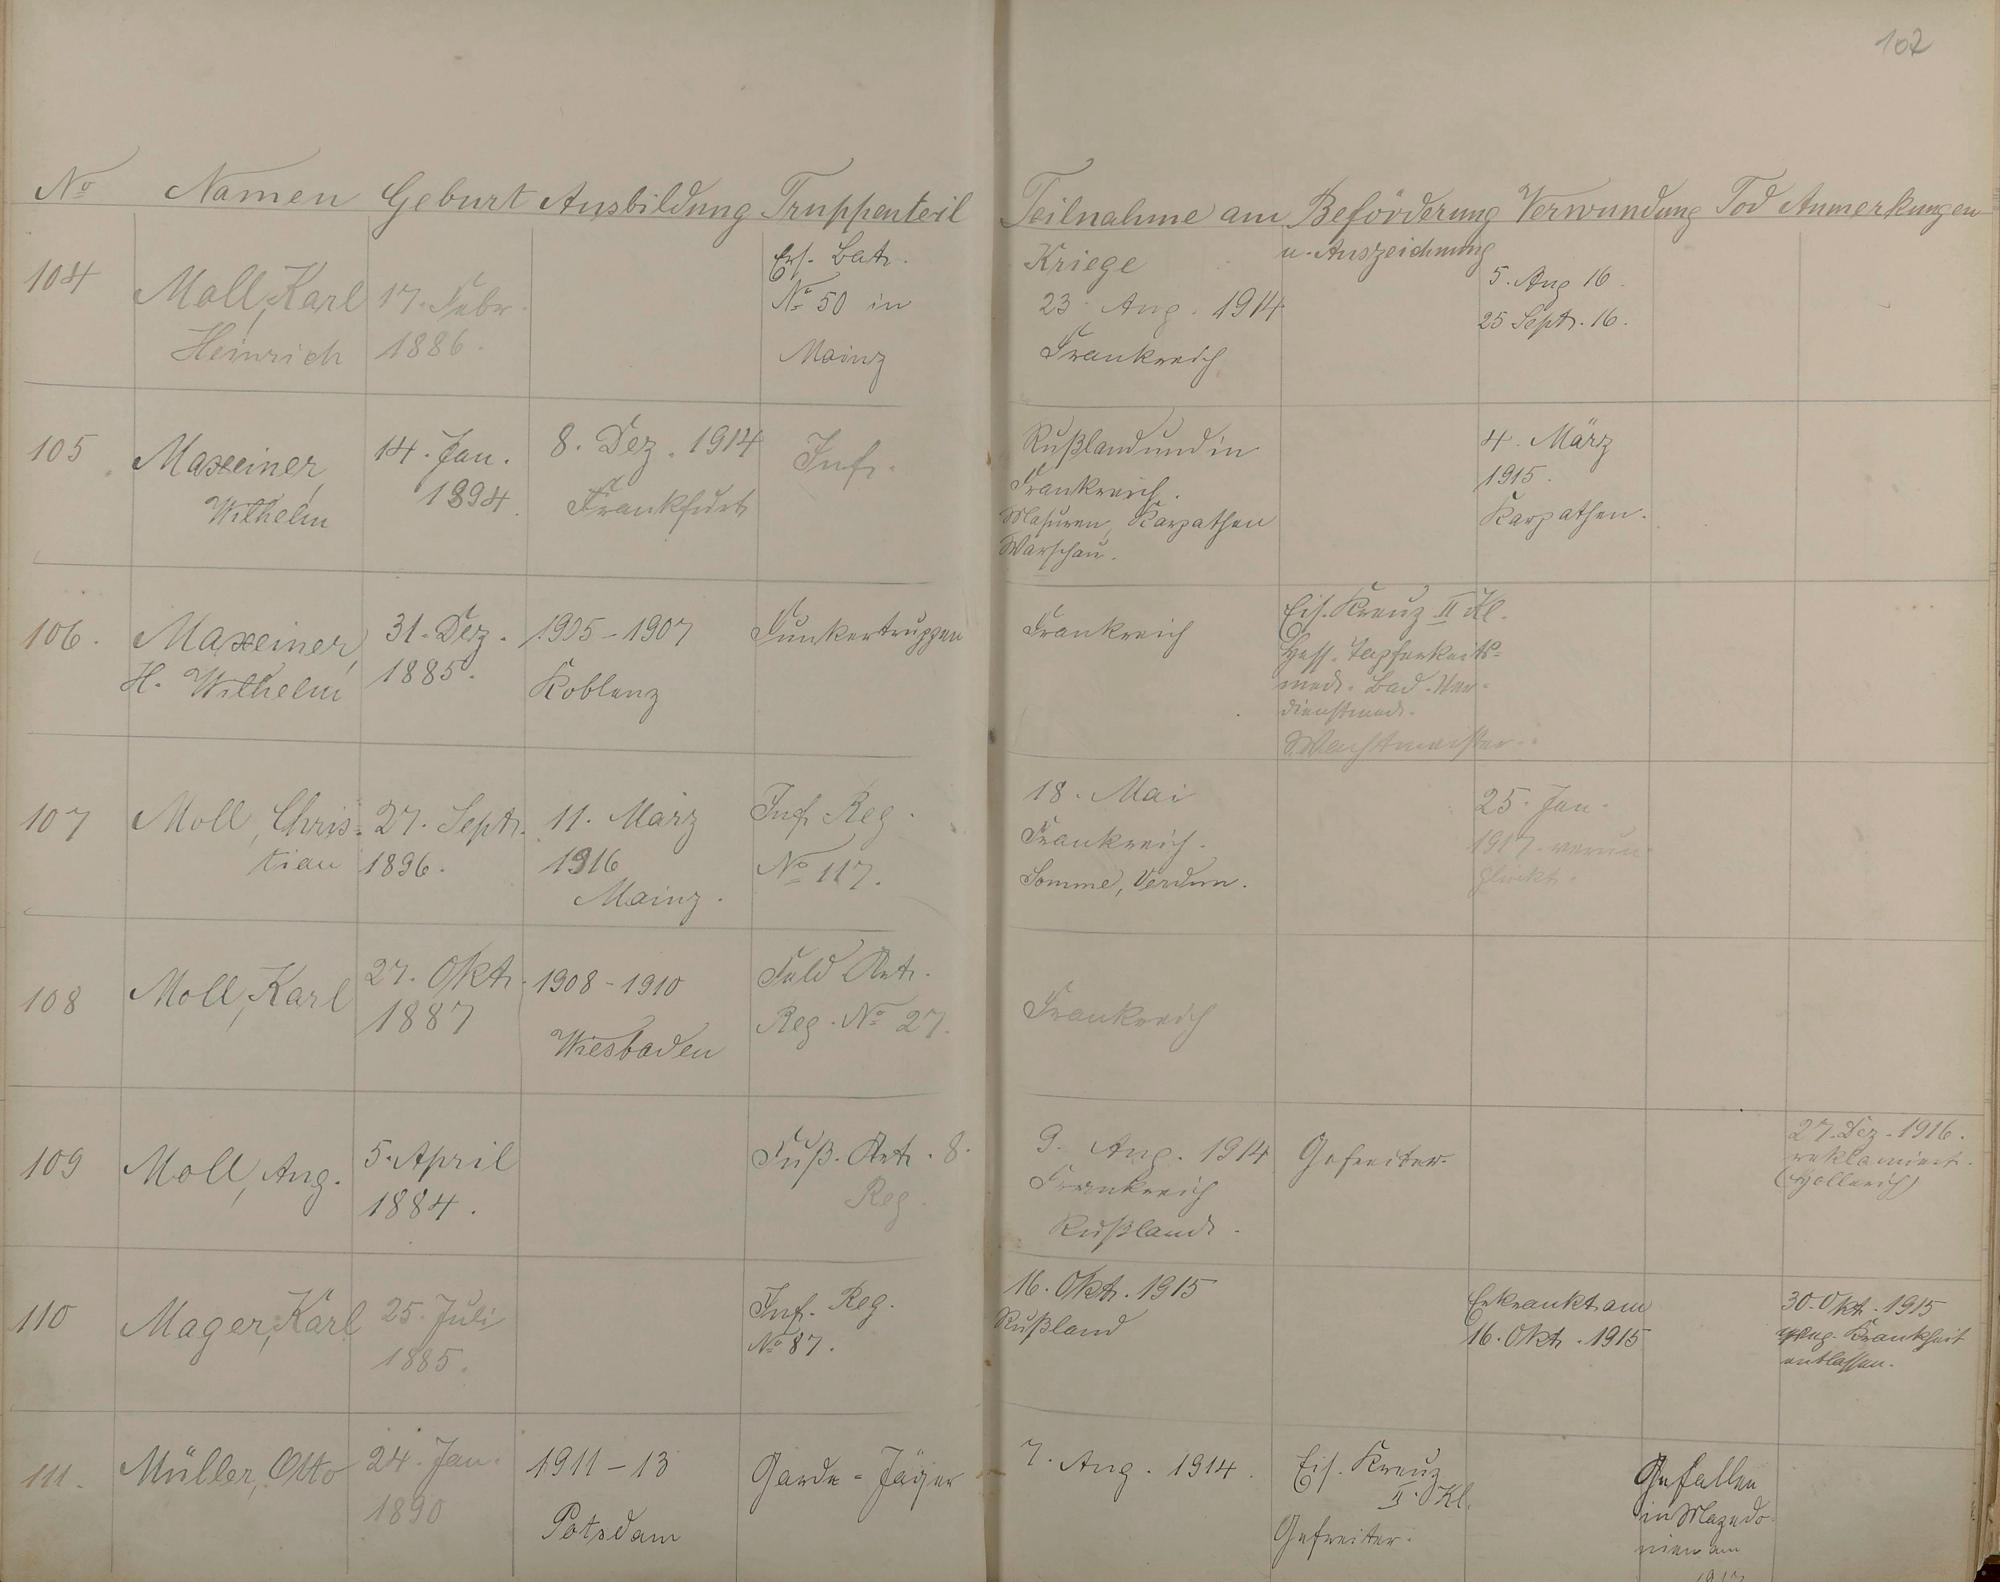 102
No Namen Geburt Ausbildung Truppenteil Teilnahme am Beförderung Verwundung Tod Anmerkungen
Kriege u. Auszeichnung
104
Moll, Karl
Heinrich
17. Febr.
1886.
Ers. Batr.
No 50 in
Mainz
23. Aug. 1914
Frankreich
5. Aug 16.
25 Septr. 16.
105
Maxeiner,
Wilhelm
14. Jan.
1894.
8. Dez. 1914
Frankfurt
Infr.
Rußland und in
Frankreich.
Masuren, Karpathen
Warschau.
4. März
1915.
Karpathen.
106.
Maxeiner,
H. Wilhelm
31. Dez.
1885.
1905-1907
Koblenz
Funkertruppen
Frankreich
Eis. Kreuz II Kl.
Hess. Tapferkeits-
med. Bad. Ver-
dienstmed.
Wachtmeister.
107
Moll, Chris-
tian
27. Septr.
1896.
11. März
1916
Mainz.
Inf. Reg.
No 117.
18. Mai
Frankreich.
Somme, Verdun.
25. Jan.
1917. verun-
glückt.
108
Moll, Karl
27. Oktr.
1887
1908-1910
Wiesbaden
Feld Artr.
Reg. No 27.
Frankreich
109
Moll, Aug.
5. April
1884.
Fuß. Artr. 8.
Reg.
9. Aug. 1914
Frankreich
Rußland.
Gefreiter.
27. Dez. 1916.
reklamiert.
(Hollerich)
110
Mager, Karl
25. Juli
1885.
Inf. Reg.
No 87.
16. Oktr. 1915
Rußland
Erkrankt am
16. Oktr. 1915
30. Okt. 1915
Krankheit
entlassen.
111.
Müller, Otto
24. Jan.
1890
1911-13
Potsdam
Garde-Jäger
7. Aug. 1914.
Eis. Kreuz
II. Kl.
Gefreiter.
Gefallen
in Mazedo-
nien am